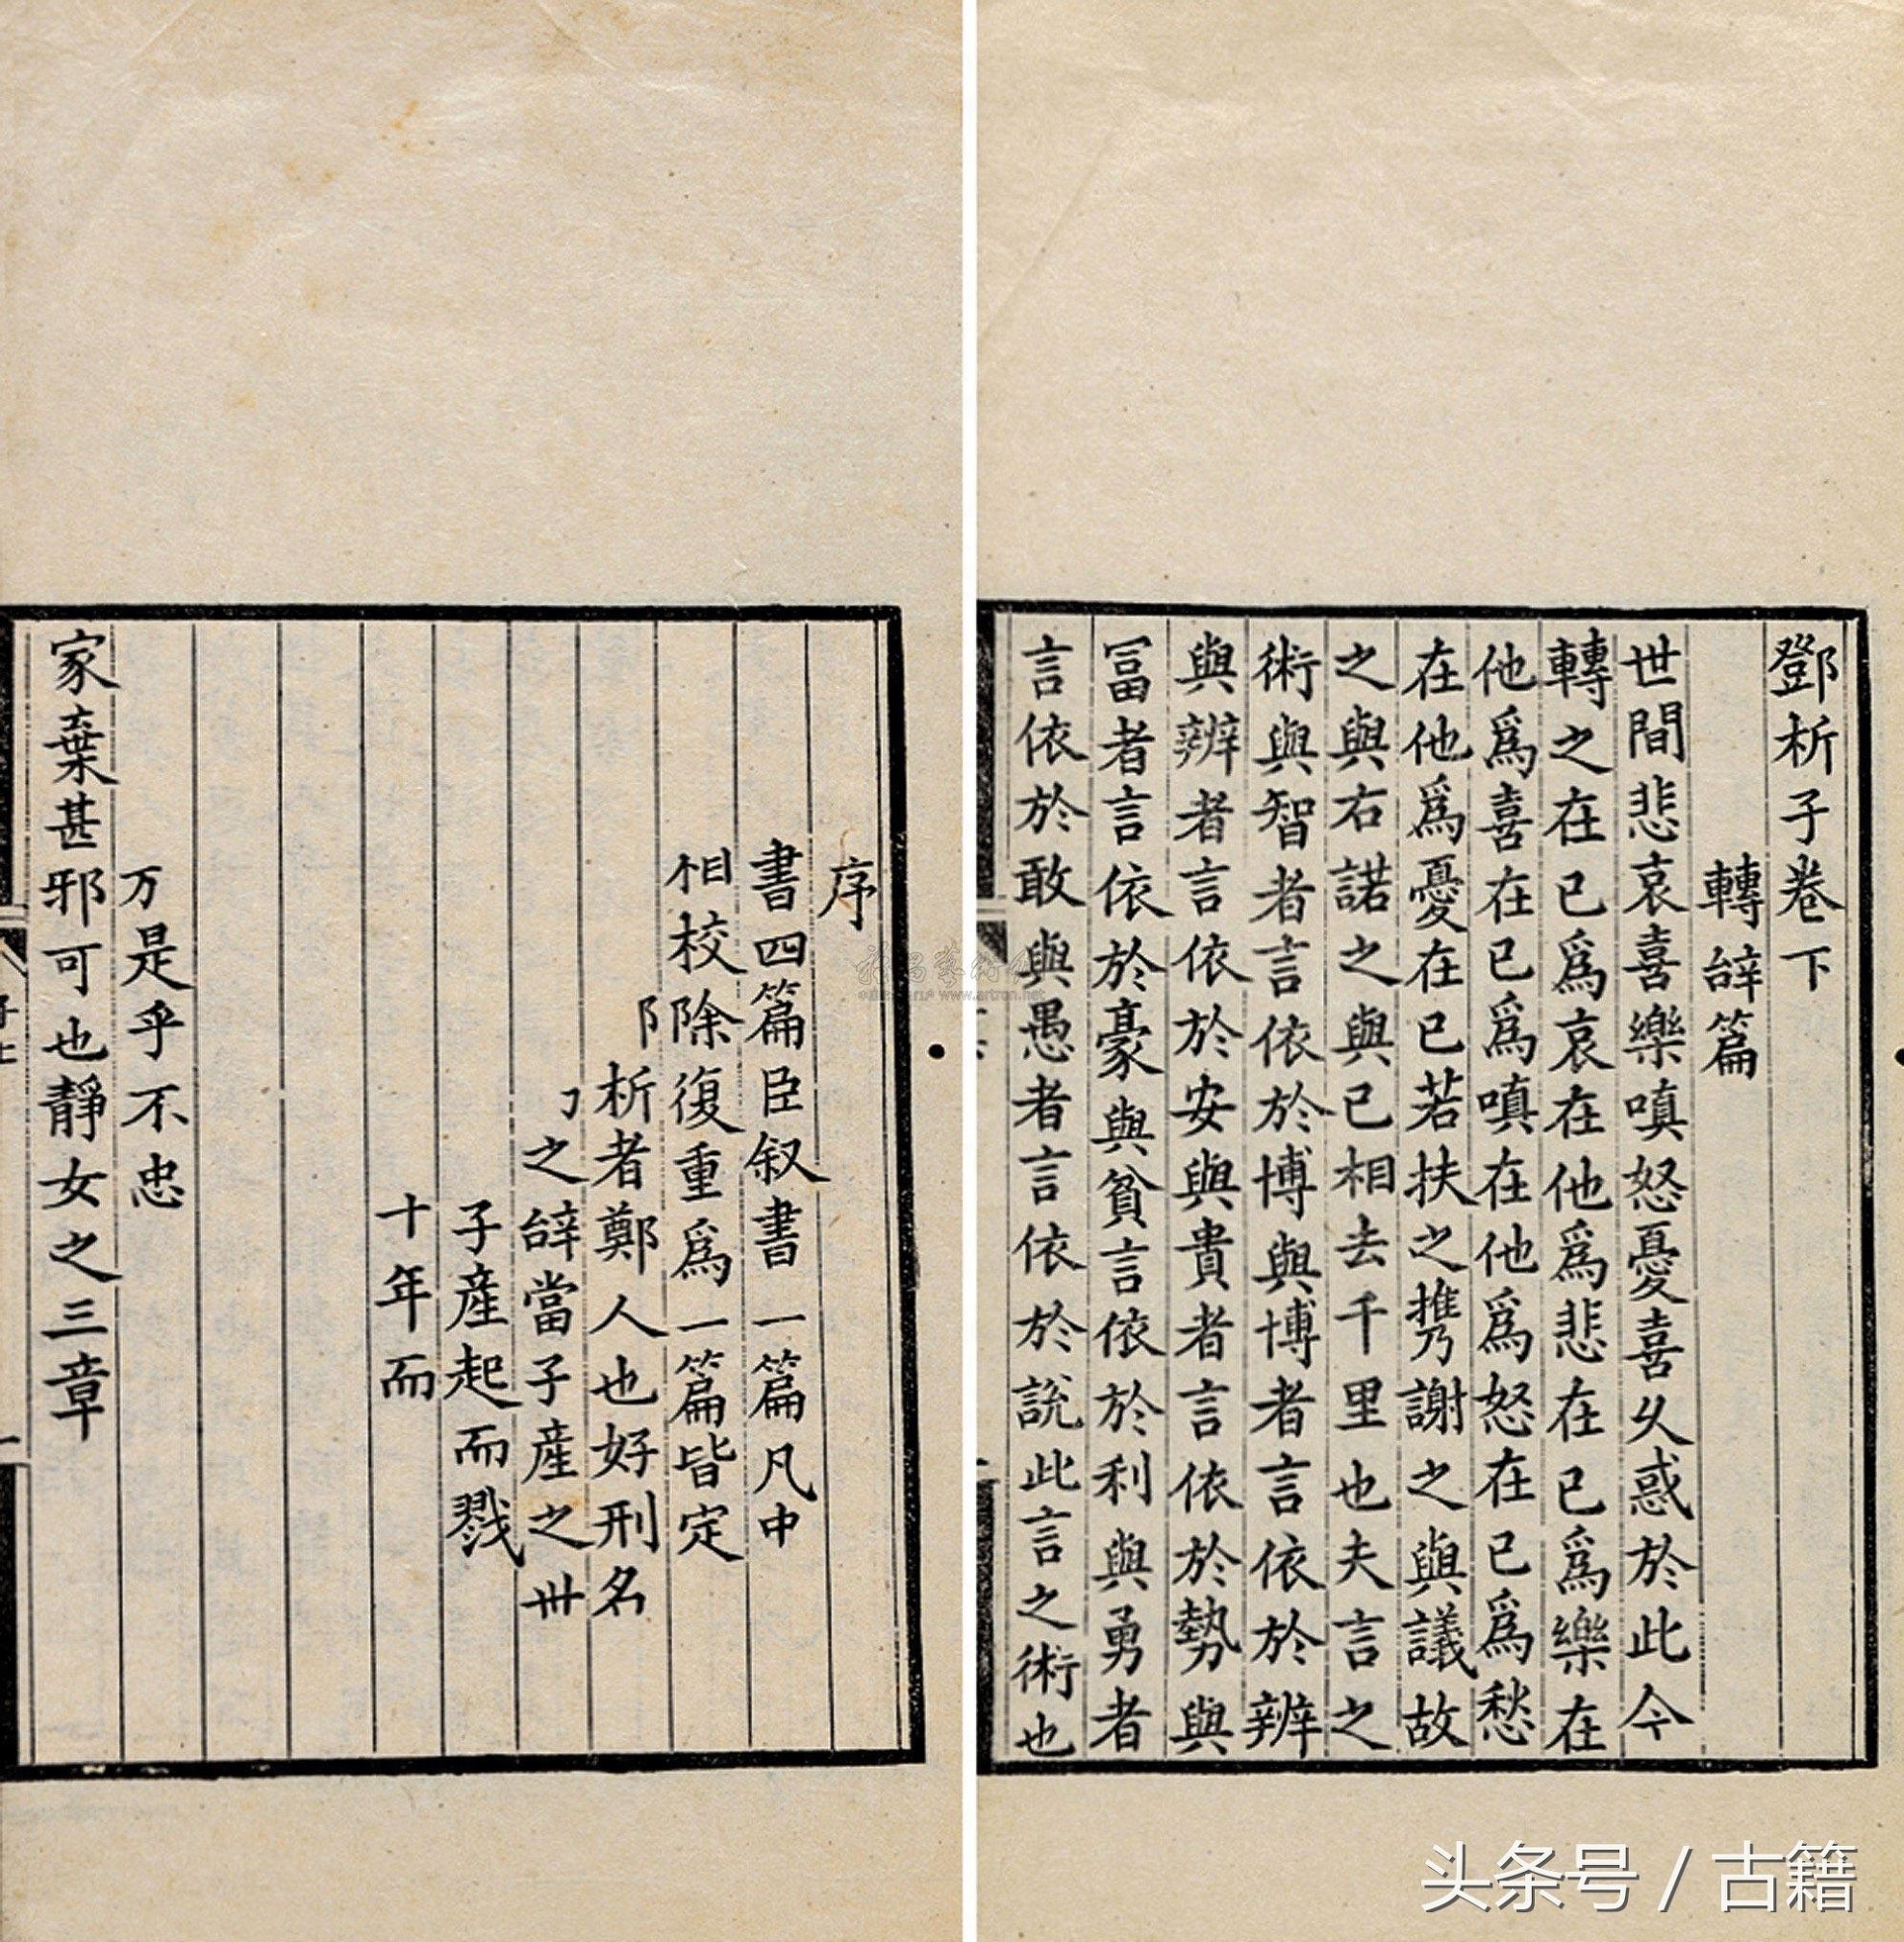 鄧析子卷下
轉辭篇
世間悲哀喜樂嗔怒憂喜乆惑於此今
轉之在已爲哀在他爲悲在已爲樂在
他爲喜在已爲嗔在他爲怒在已爲愁
在他爲憂在已若扶之携謝之與議故
之與右諾之與已相去千里也夫言之
術與智者言依於博與博者言依於辨
與辨者言依於安與貴者言依於勢與
冨者言依於豪與貧言依於利與勇者
言依於敢與愚者言依於說此言之術也
序
書四篇臣叙書一篇凡中
相校除復重爲一篇皆定
析者鄭人也好刑名
之辭當子產之丗
子產起而戮
十年而
是乎不忠
家棄甚邪可也靜女之三章
头条号 / 古籍
www.artron.net